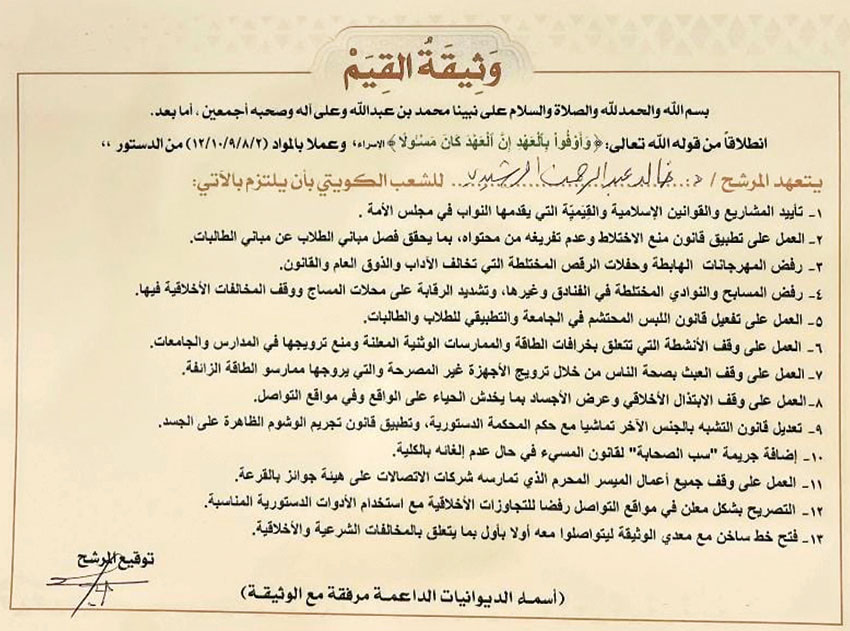 وَثِيقَةُ القِيَمْ
بسم الله والحمدلله والصلاة والسلام على نبينا محمد بن عبدالله وعلى آله وصحبه أجمعين ، أما بعد.
انطلاقاً من قوله الله تعالى: ﴿وَأَوْفُوا۟ بِٱلْعَهْدِ إِنَّ ٱلْعَهْدَ كَانَ مَسْـُٔولًا﴾ الاسراء، وعملا بالمواد (١٢/١٠/٩/٨/٢) من الدستور ،،
يتعهد المرشح / د. خالد عبدالرحمن الرشيدي للشعب الكويتي بأن يلتزم بالآتي:
١- تأييد المشاريع والقوانين الإسلامية والقِيَميّة التي يقدمها النواب في مجلس الأمة .
٢- العمل على تطبيق قانون منع الاختلاط وعدم تفريغه من محتواه، بما يحقق فصل مباني الطلاب عن مباني الطالبات.
٣- رفض المهرجانات الهابطة وحفلات الرقص المختلطة التي تخالف الآداب والذوق العام والقانون.
٤- رفض المسابح والنوادي المختلطة في الفنادق وغيرها، وتشديد الرقابة على محلات المساج ووقف المخالفات الأخلاقية فيها.
٥- العمل على تفعيل قانون اللبس المحتشم في الجامعة والتطبيقي للطلاب والطالبات.
٦- العمل على وقف الأنشطة التي تتعلق بخرافات الطاقة والممارسات الوثنية المعلنة ومنع ترويجها في المدارس والجامعات.
٧- العمل على وقف العبث بصحة الناس من خلال ترويج الأجهزة غير المصرحة والتي يروجها ممارسو الطاقة الزائفة.
٨-العمل على وقف الابتذال الأخلاقي وعرض الأجساد بما يخدش الحياء على الواقع وفي مواقع التواصل.
٩- تعديل قانون التشبه بالجنس الآخر تماشيا مع حكم المحكمة الدستورية، وتطبيق قانون تجريم الوشوم الظاهرة على الجسد.
١٠- إضافة جريمة "سب الصحابة" لقانون المسيء في حال عدم إلغائه بالكلية.
١١- العمل على وقف جميع أعمال الميسر المحرم الذي تمارسه شركات الاتصالات على هيئة جوائز بالقرعة.
١٢- التصريح بشكل معلن في مواقع التواصل رفضا للتجاوزات الأخلاقية مع استخدام الأدوات الدستورية المناسبة.
١٣- فتح خط ساخن مع معدي الوثيقة ليتواصلوا معه أولا بأول بما يتعلق بالمخالفات الشرعية والأخلاقية.
توقيع المرشح
(أسماء الديوانيات الداعمة مرفقة مع الوثيقة)